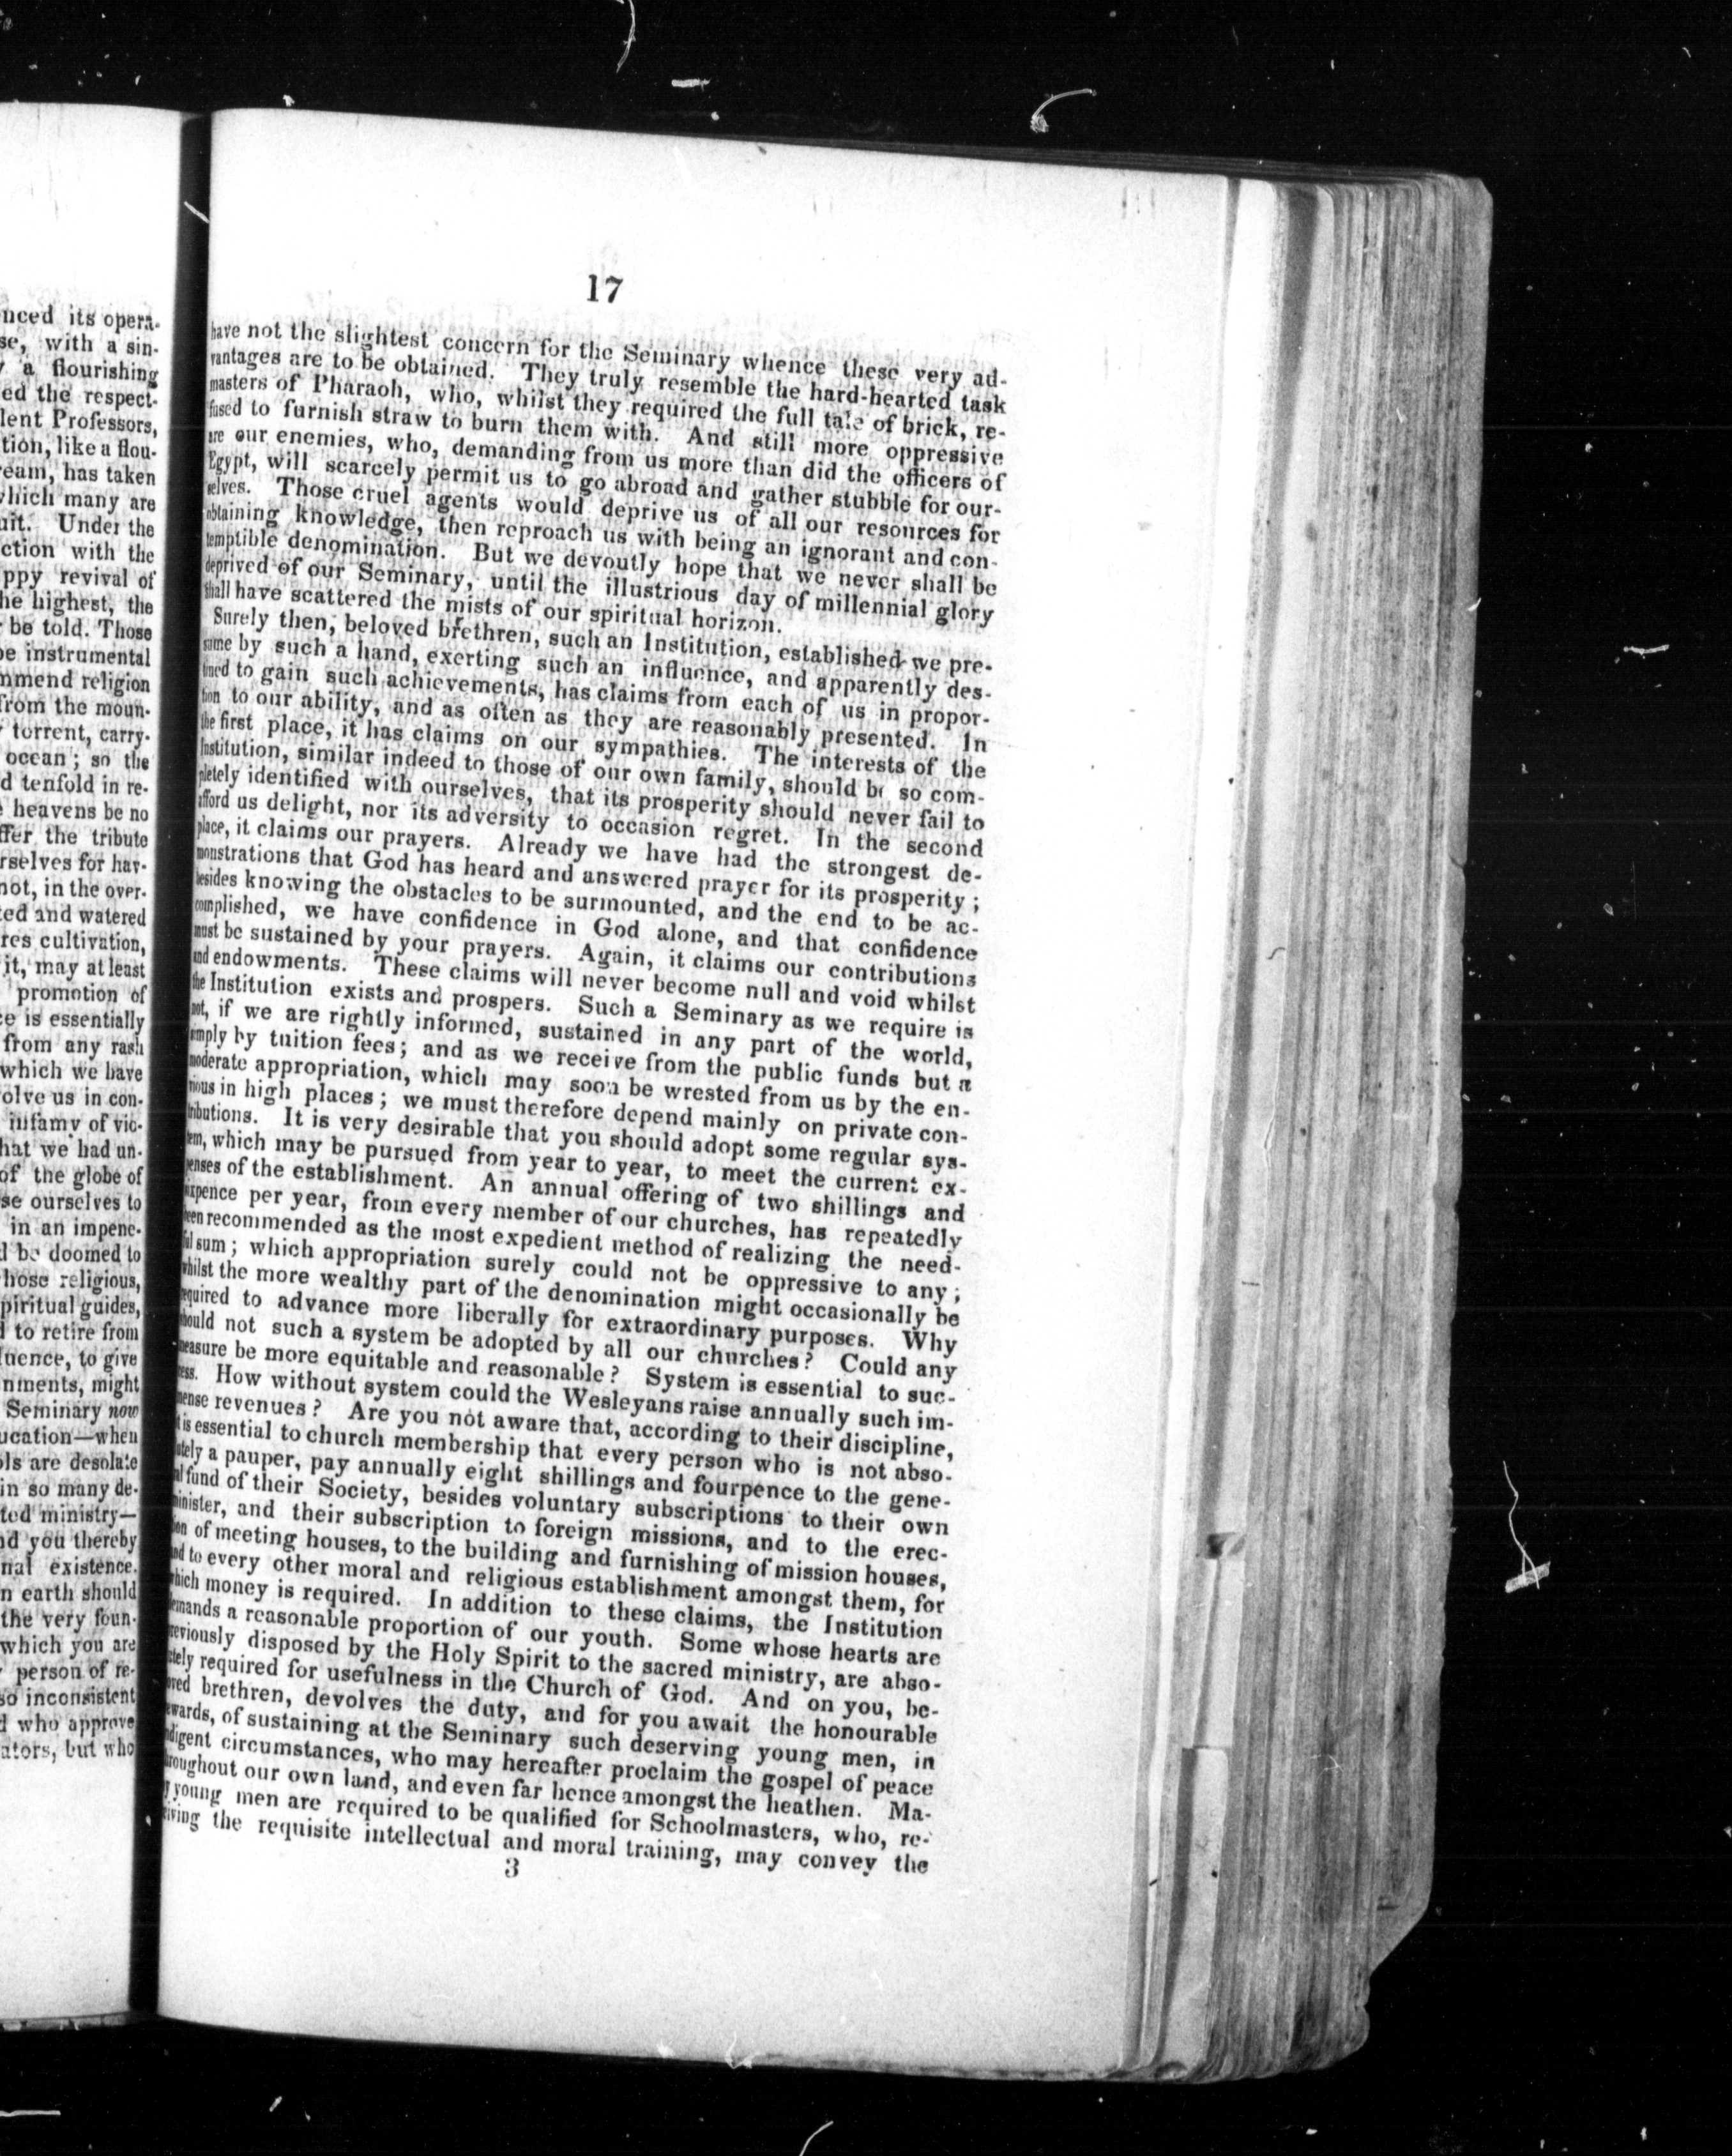 nced its opera-
se, with a sin-
a flourishing
ed the respect-
lent Professors,
tion, like a flou-
eam, has taken
which many are
uit. Under the
ction with the
ppy revival of
he highest, the
be told. Those
be instrumental
mmend religion
from the moun-
torrent, carry-
ocean; so the
d tenfold in re-
heavens be no
ffer the tribute
rselves for hav-
not, in the over-
ted and watered
res cultivation,
it, may at least
promotion of
ce is essentially
from any rash
which we have
olve us in con-
infamy of vic-
hat we had un-
of the globe of
se ourselves to
in an impene-
l be doomed to
hose religious,
piritual guides,
l to retire from
luence, to give
nments, might
Seminary now
ucation—when
ols are desolate
in so many de-
ted ministry—
nd you thereby
nal existence.
n earth should
the very foun-
which you are
person of re-
so inconsistent
d who approve
ators, but who
17
have not the slightest concern for the Seminary whence these very ad-
vantages are to be obtained. They truly resemble the hard-hearted task
masters of Pharaoh, who, whilst they required the full tale of brick, re-
fused to furnish straw to burn them with. And still more oppressive
are our enemies, who, demanding from us more than did the officers of
Egypt, will scarcely permit us to go abroad and gather stubble for our-
selves. Those cruel agents would deprive us of all our resources for
obtaining knowledge, then reproach us with being an ignorant and con-
temptible denomination. But we devoutly hope that we never shall be
deprived of our Seminary, until the illustrious day of millennial glory
shall have scattered the mists of our spiritual horizon.
Surely then, beloved brethren, such an Institution, established we pre-
sume by such a hand, exerting such an influence, and apparently des-
tined to gain such achievements, has claims from each of us in propor-
tion to our ability, and as often as they are reasonably presented. In
the first place, it has claims on our sympathies. The interests of the
Institution, similar indeed to those of our own family, should be so com-
pletely identified with ourselves, that its prosperity should never fail to
afford us delight, nor its adversity to occasion regret. In the second
place, it claims our prayers. Already we have had the strongest de-
monstrations that God has heard and answered prayer for its prosperity;
besides knowing the obstacles to be surmounted, and the end to be ac-
complished, we have confidence in God alone, and that confidence
must be sustained by your prayers. Again, it claims our contributions
and endowments. These claims will never become null and void whilst
the Institution exists and prospers. Such a Seminary as we require is
not, if we are rightly informed, sustained in any part of the world,
simply by tuition fees; and as we receive from the public funds but a
moderate appropriation, which may soon be wrested from us by the en-
vious in high places; we must therefore depend mainly on private con-
tributions. It is very desirable that you should adopt some regular sys-
tem, which may be pursued from year to year, to meet the current ex-
penses of the establishment. An annual offering of two shillings and
sixpence per year, from every member of our churches, has repeatedly
been recommended as the most expedient method of realizing the need-
ful sum; which appropriation surely could not be oppressive to any;
whilst the more wealthy part of the denomination might occasionally be
required to advance more liberally for extraordinary purposes. Why
should not such a system be adopted by all our churches? Could any
measure be more equitable and reasonable? System is essential to suc-
cess. How without system could the Wesleyans raise annually such im-
mense revenues? Are you not aware that, according to their discipline,
it is essential to church membership that every person who is not abso-
lutely a pauper, pay annually eight shillings and fourpence to the gene-
ral fund of their Society, besides voluntary subscriptions to their own
minister, and their subscription to foreign missions, and to the erec-
tion of meeting houses, to the building and furnishing of mission houses,
and to every other moral and religious establishment amongst them, for
which money is required. In addition to these claims, the Institution
demands a reasonable proportion of our youth. Some whose hearts are
previously disposed by the Holy Spirit to the sacred ministry, are abso-
lutely required for usefulness in the Church of God. And on you, be-
loved brethren, devolves the duty, and for you await the honourable
rewards, of sustaining at the Seminary such deserving young men, in
indigent circumstances, who may hereafter proclaim the gospel of peace
throughout our own land, and even far hence amongst the heathen. Ma-
ny young men are required to be qualified for Schoolmasters, who, re-
ceiving the requisite intellectual and moral training, may convey the
3